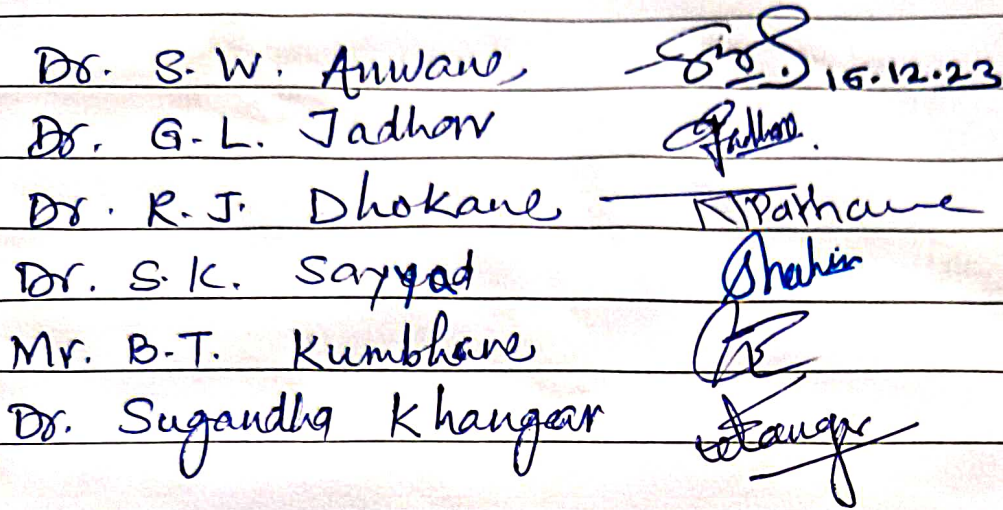 Dr. S. W. Anwane, 15.12.23
Dr. G. L. Jadhav
Dr. R. J. Dhokane
Dr. S. K. Sayyad Shahin
Mr. B. T. Kumbhare
Dr. Sugandha Khangar